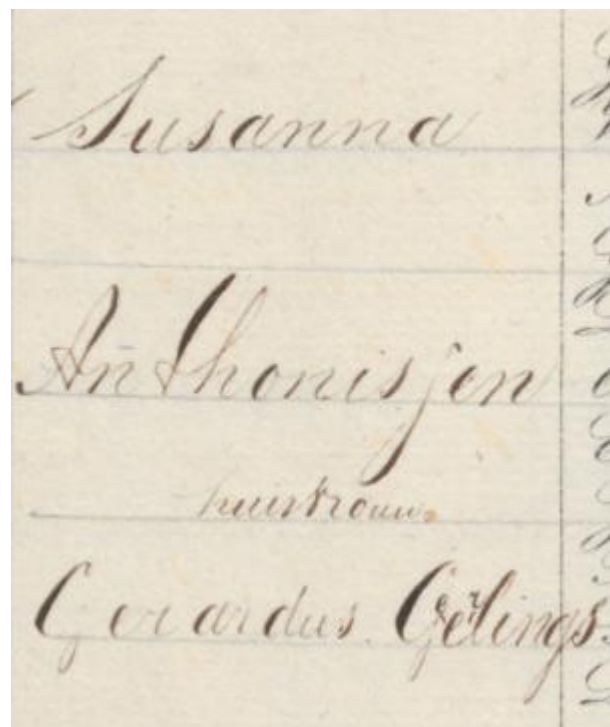 Susanna
Anthonisjen
huisvrouw.
Gerardus